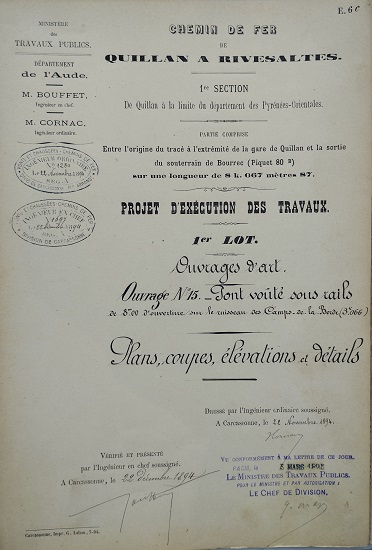 E. 6 c
MINISTÈRE
des
TRAVAUX PUBLICS.
DÉPARTEMENT
de l'Aude.
M. BOUFFET,
Ingénieur en chef.
M. CORNAC,
Ingénieur ordinaire.
CHEMIN DE FER
DE
QUILLAN A RIVESALTES.
1re SECTION
De Quillan à la limite du département des Pyrénées-Orientales.
PARTIE COMPRISE
Entre l'origine du tracé à l'extrémité de la gare de Quillan et la sortie
du souterrain de Bourrec (Piquet 80 )
sur une longueur de 8 k. 067 mètres 87.
PROJET D'EXÉCUTION DES TRAVAUX.
1er LOT.
Ouvrages d'art.
Ouvrage N° 15. Pont voûté sous rails
de d'ouverture sur le ruisseau des Camps de la Borde
Plans, coupes, élévations et détails
Dressé par l'Ingénieur ordinaire soussigné.
A Carcassonne, le 22 Novembre 1894.
VÉRIFIÉ ET PRÉSENTÉ
par l'Ingénieur en chef soussigné.
A Carcassonne, le 22 Décembre 1894
VU CONFORMÉMENT À MA LETTRE DE CE JOUR,
PARIS, le MARS
LE MINISTRE DES TRAVAUX PUBLICS,
POUR LE MINISTRE ET PAR AUTORISATION :
LE CHEF DE DIVISION,
Carcassonne, Impr.